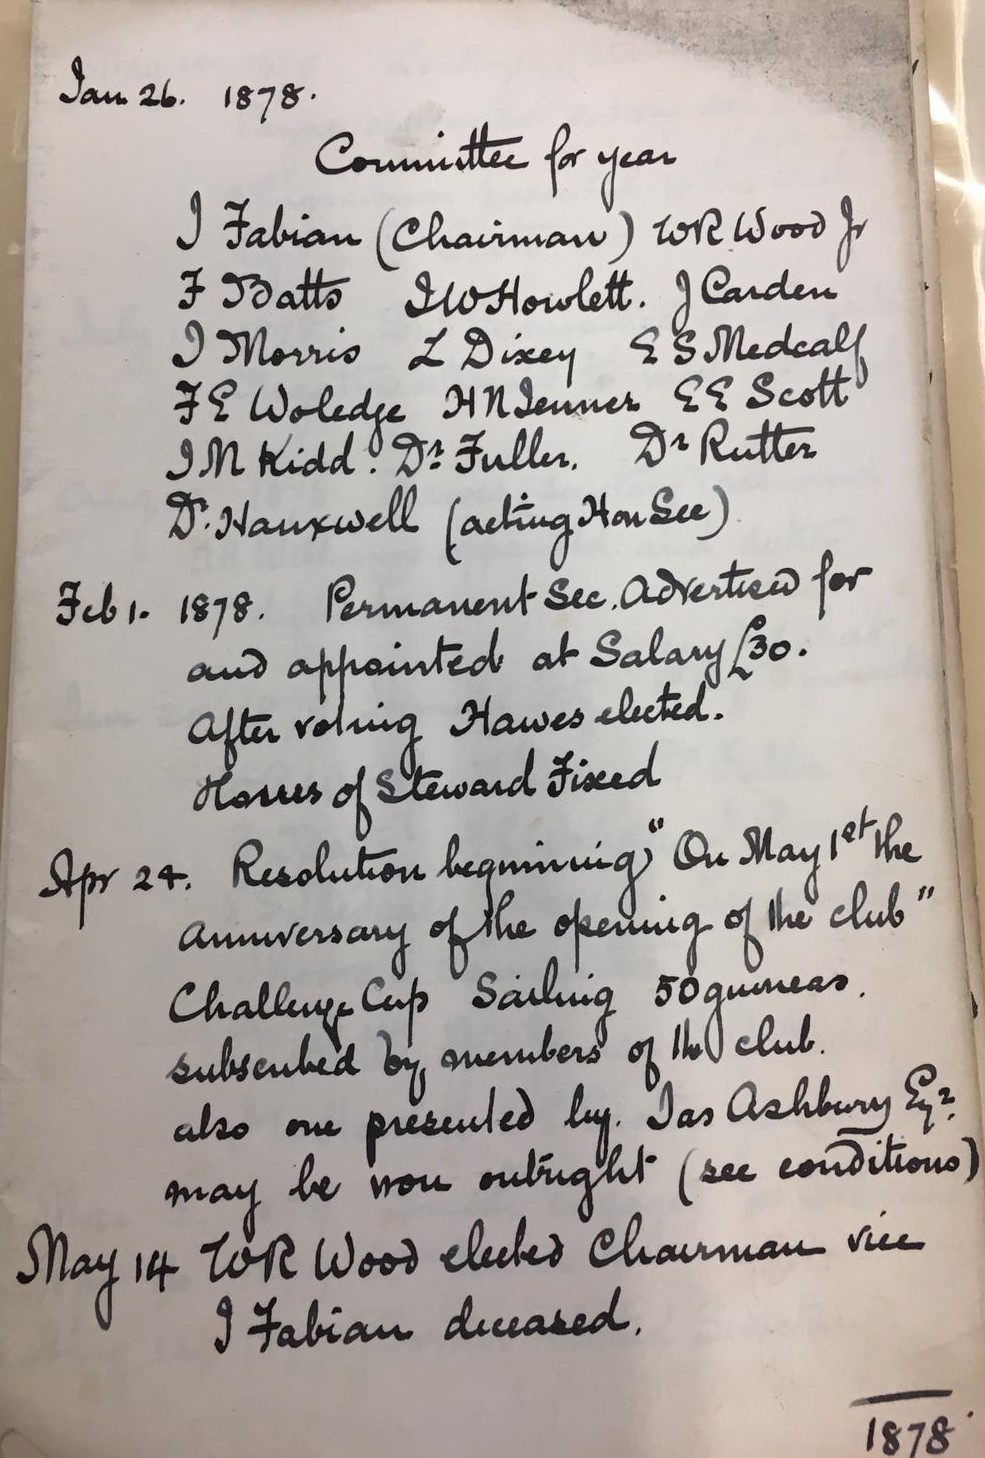 Jan 26. 1878.
Committee for year
J Fabian (Chairman) WR Wood Jr
F Batts J W Howlett. J Carden
J Morris L Dixey E S Medcalf
F E Woledge H N Jenner E E Scott
J M Kidd. Dr Fuller. Dr Rutter
Dr. Hauxwell (acting Hon Sec)
Feb 1. 1878. Permanent Sec. Advertised for
and appointed at Salary £30.
After voting Hawes elected.
Hours of Steward Fixed
Apr 24. Resolution beginning "On May 1st the
anniversary of the opening of the club"
Challenge Cup Sailing 50 guineas.
subscribed by members of the club.
also one presented by. Jas Ashbury Esqr.
may be won outright (see conditions)
May 14 WR Wood elected Chairman vice
J Fabian deceased.
1878